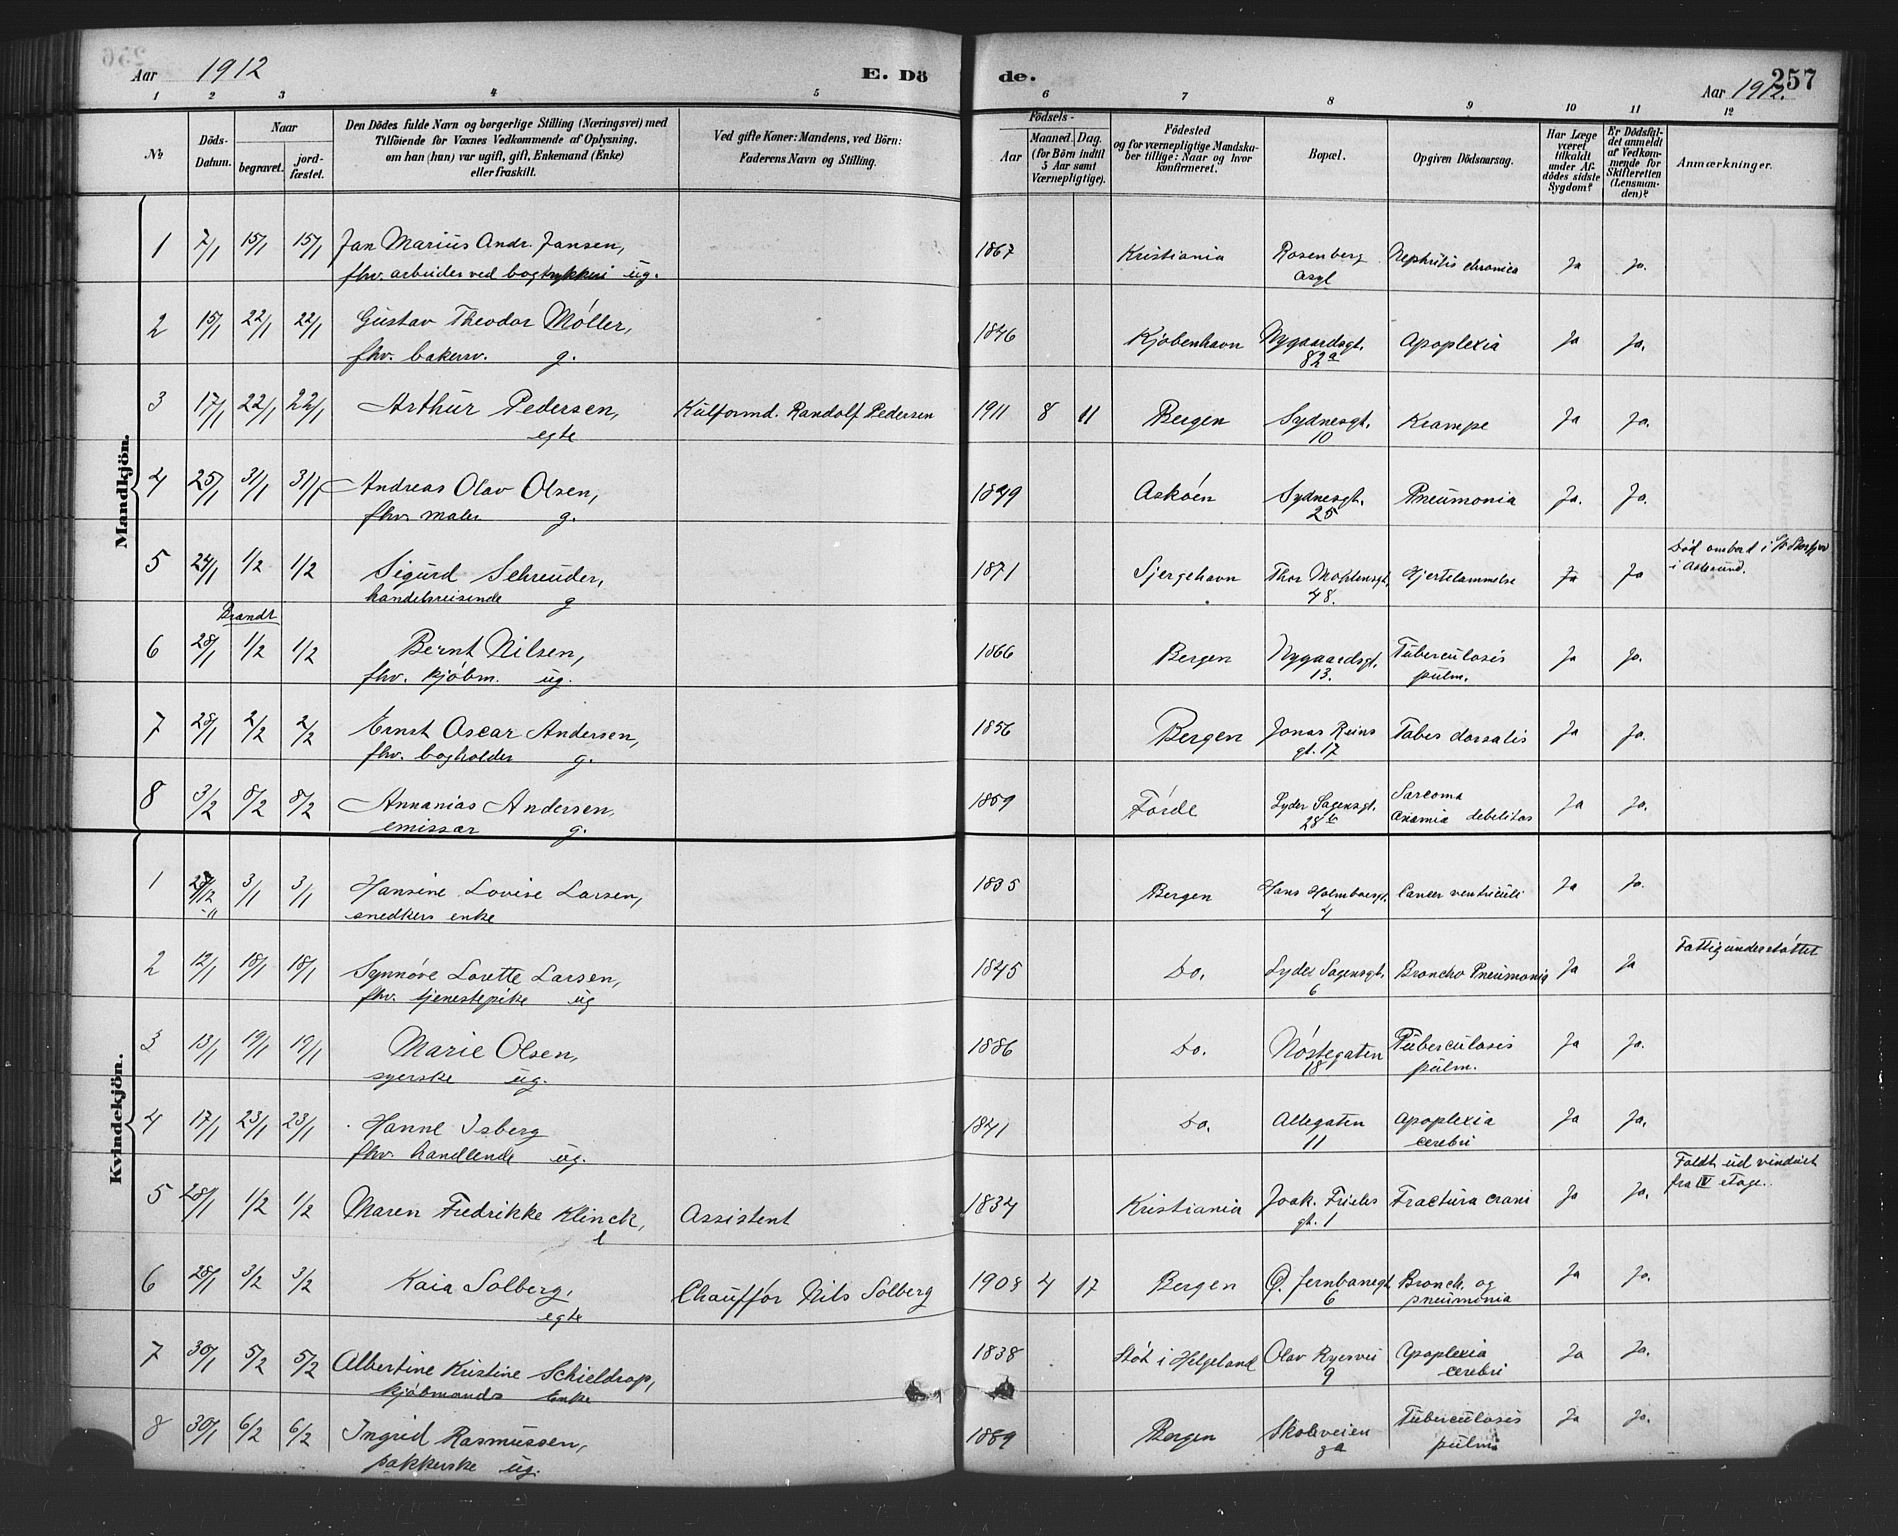 Aar 1912 E. Dö de. Aar 1912. 257
1 2 3 4 5 6 7 8 9 10 11 12
No
Döds-Datum.
Naar begravet. jordfæstet.
Den Dödes fulde Navn og borgerlige Stilling (Næringsvei) med
Tilföiende for Voxnes Vedkommende af Oplysning,
om han (hun) var ugift, gift, Enkemand (Enke)
eller fraskilt.
Ved gifte Koner: Mandens, ved Börn:
Faderens Navn og Stilling.
Födsels-
Aar Maaned. Dag.
(for Börn indtil
5 Aar samt
Værnepligtige).
Födested
og for værnepligtige Mandska-
ber tillige: Naar og hvor
konfirmeret.
Bopæl.
Opgiven Dödsaarsag.
Har Læge
været
tilkaldt
under Af-
dödes sidste
Sygdom?
Er Dödsfal-
det anmeldt
af Vedkom-
mende for
Skifteretten
(Lensman-
den)?
Anmærkninger.
Mandkjön.
1 7/1 15/1 15/1 Jan Marius Andr. Jansen, 1867 Kristiania Rosenberg Nephritis chronica Ja Ja.
fhv. arbeider ved bogtrykkeri ug. Asyl
2 15/1 22/1 22/1 Gustav Theodor Møller, 1846 Kjøbenhavn Nygaardsgt. Apoplexia Ja Ja.
fhv. bakersv. g. 82a
3 17/1 22/1 22/1 Arthur Pedersen, Kulformd. Randolf Pedersen 1911 8 11 Bergen Sydnesgt. Krampe Ja Ja.
egte 10
4 25/1 31/1 31/1 Andreas Olav Olsen, 1849 Askøen Sydnesgt. Pneumonia Ja. Ja.
fhv. maler g. 25
5 24/1 1/2 1/2 Sigurd Schreuder, 1871 Thor Møhlensgt. Hjertelammelse Ja Ja Død ombord i
handelsreisende g 48. i Aalesund.
Brandt
6 28/1 1/2 1/2 Bernt Nilsen, 1866 Bergen Nygaardsgt. Tuberculosis Ja Ja.
fhv. kjøbm. ug. 13. pulm.
7 28/1 2/2 2/2 Ernst Oscar Andersen, 1856 Bergen Jonas Reins Tabes dorsalis Ja Ja.
fhv. bogholder g. gt. 17
8 3/2 8/2 8/2 Annanias Andersen, 1859 Førde Lyder Sagensgt. Sarcoma Ja Ja.
emissær g. 28b debelitas
Kvindekjön.
1 3/1 3/1 Hansine Lovise Larsen, 1835 Bergen Hans Holmboesgt. Cancer ventriculi Ja Ja.
snedkers enke 4
2 12/1 18/1 18/1 Synnøve Lovette Larsen, 1845 Do. Lyder Sagensgt. Broncho Pneumonia Ja Ja Fattigunderstøttet
fhv. tjenestepike ug 6
3 13/1 19/1 19/1 Marie Olsen, 1886 Do. Nøstegaten Tuberculosis Ja Ja.
syerske ug. 18 pulm.
4 17/1 23/1 23/1 Hanne Isberg 1841 Do. Allegaten Apoplexia Ja Ja.
fhv. handlende ug. 11 cerebri
5 28/1 1/2 1/2 Maren Fredrikke Klinck, Assistent 1834 Kristiania Joak. Frieles Fractura crani Ja Ja. Faldt ud vinduet
e gt. 1 fra IV etage.
6 28/1 3/2 3/2 Kaia Solberg, Chauffør Nils Solberg 1908 4 17 Bergen Ø. Jernbanegt. Bronch. og Ja Ja.
egte 6 pneumonia
7 30/1 5/2 5/2 Albertine Kristine Schieldrop, 1838 Støt i Helgeland Olav Ryesvei Apoplexia Ja Ja.
kjøbmands Enke 9 cerebri
8 30/1 6/2 6/2 Ingrid Rasmussen, 1889 Bergen Skoleveien Tuberculosis Ja Ja.
pakkerske ug. pulm